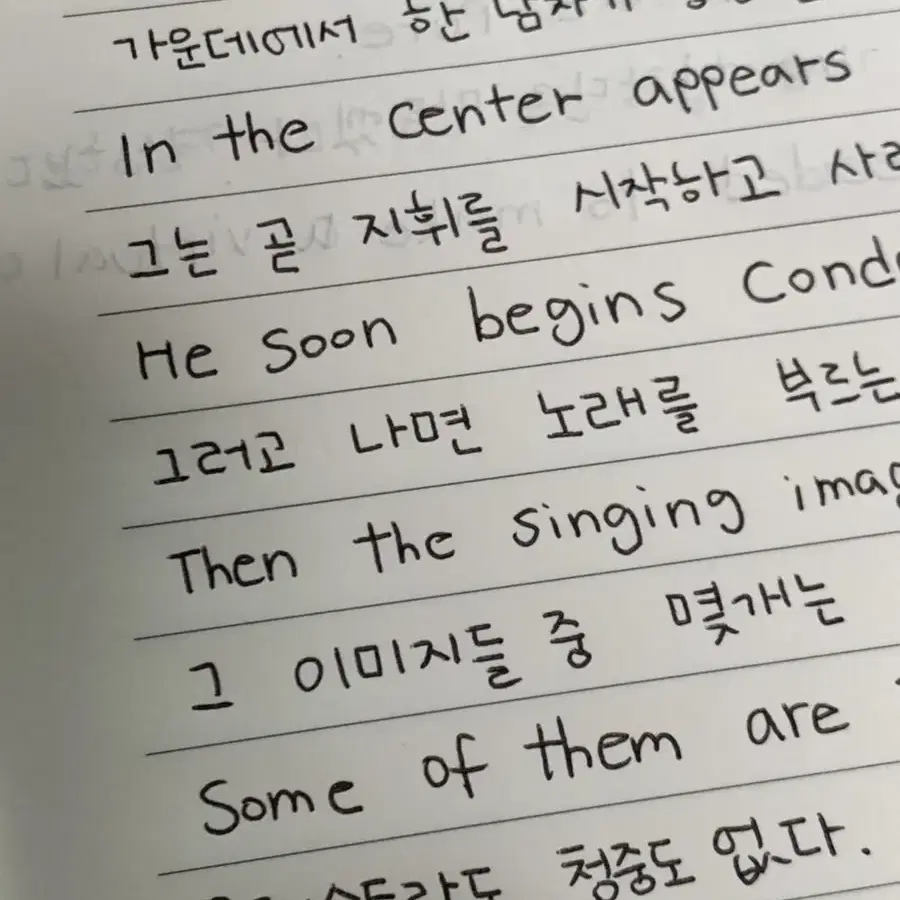 가운데에서 한 남자가
In the center appears
그는 곧 지휘를 시작하고
He soon begins
그러고 나면 노래를 부르는
Then the singing
그 이미지들 중 몇개는
Some of them are
청중도 없다.